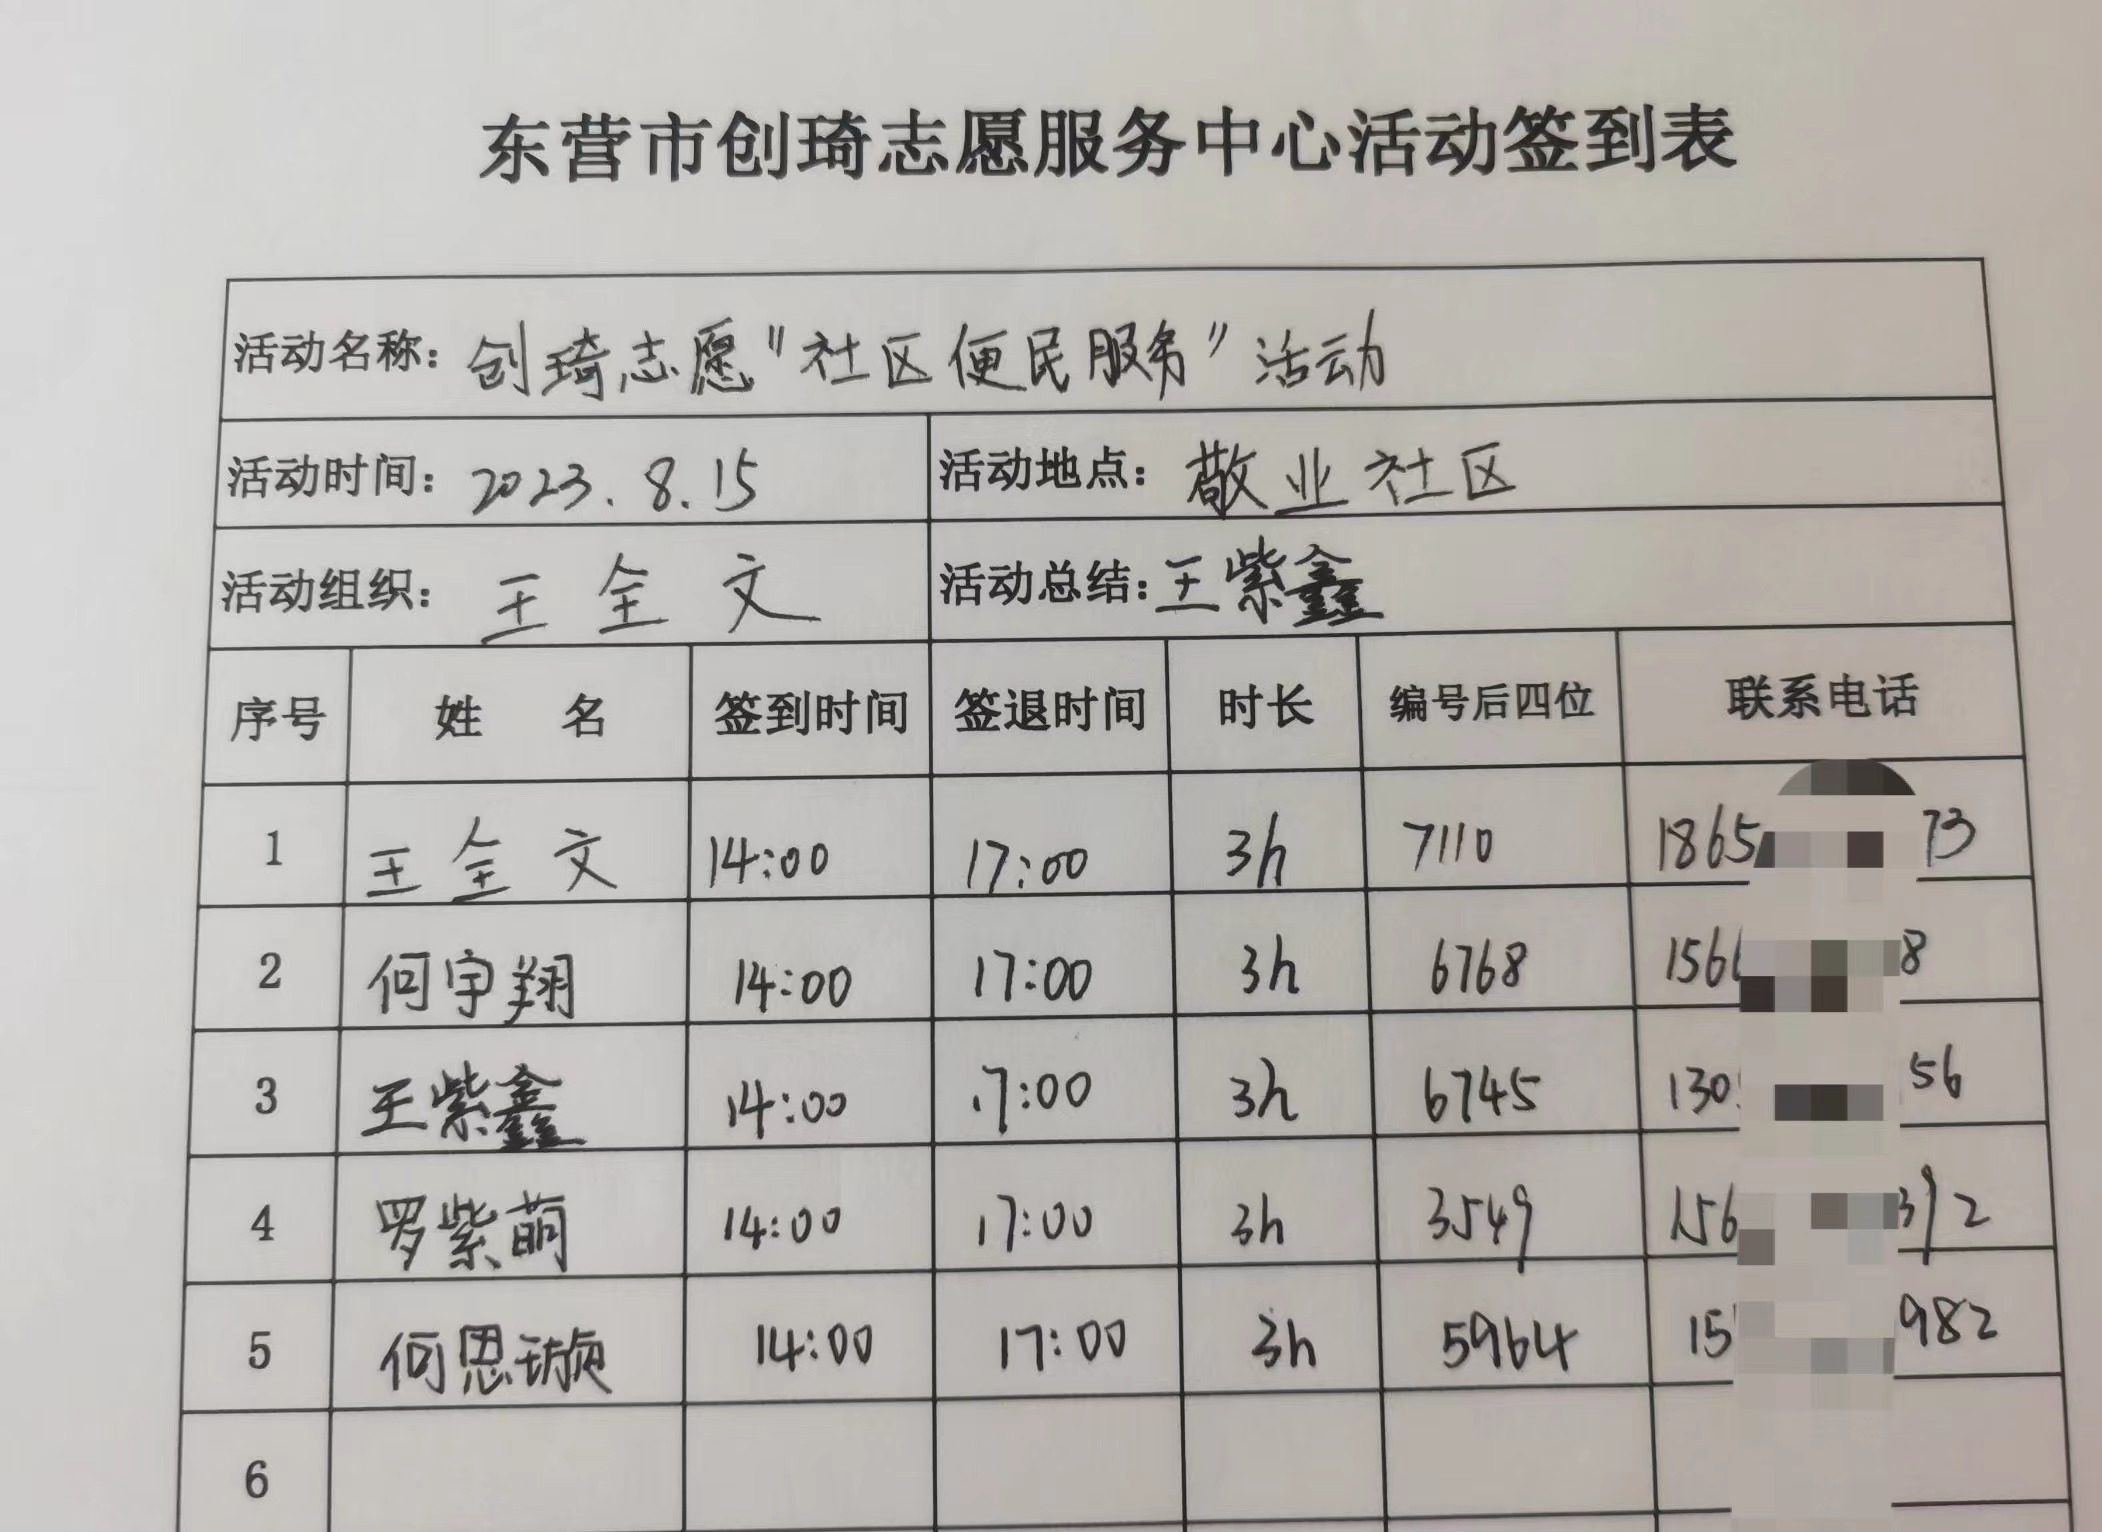 东营市创琦志愿服务中心活动签到表
活动名称：创琦志愿"社区便民服务"活动
活动时间：2023.8.15 活动地点：敬业社区
活动组织：王全文 活动总结：王紫鑫
序号 姓名 签到时间 签退时间 时长 编号后四位 联系电话
1 王全文 14:00 17:00 3h 7110 1865 73
2 何宇翔 14:00 17:00 3h 6768 156 8
3 王紫鑫 14:00 17:00 3h 6745 130 56
4 罗紫萌 14:00 17:00 3h 3549 156 392
5 何恩璇 14:00 17:00 3h 5964 15 982
6